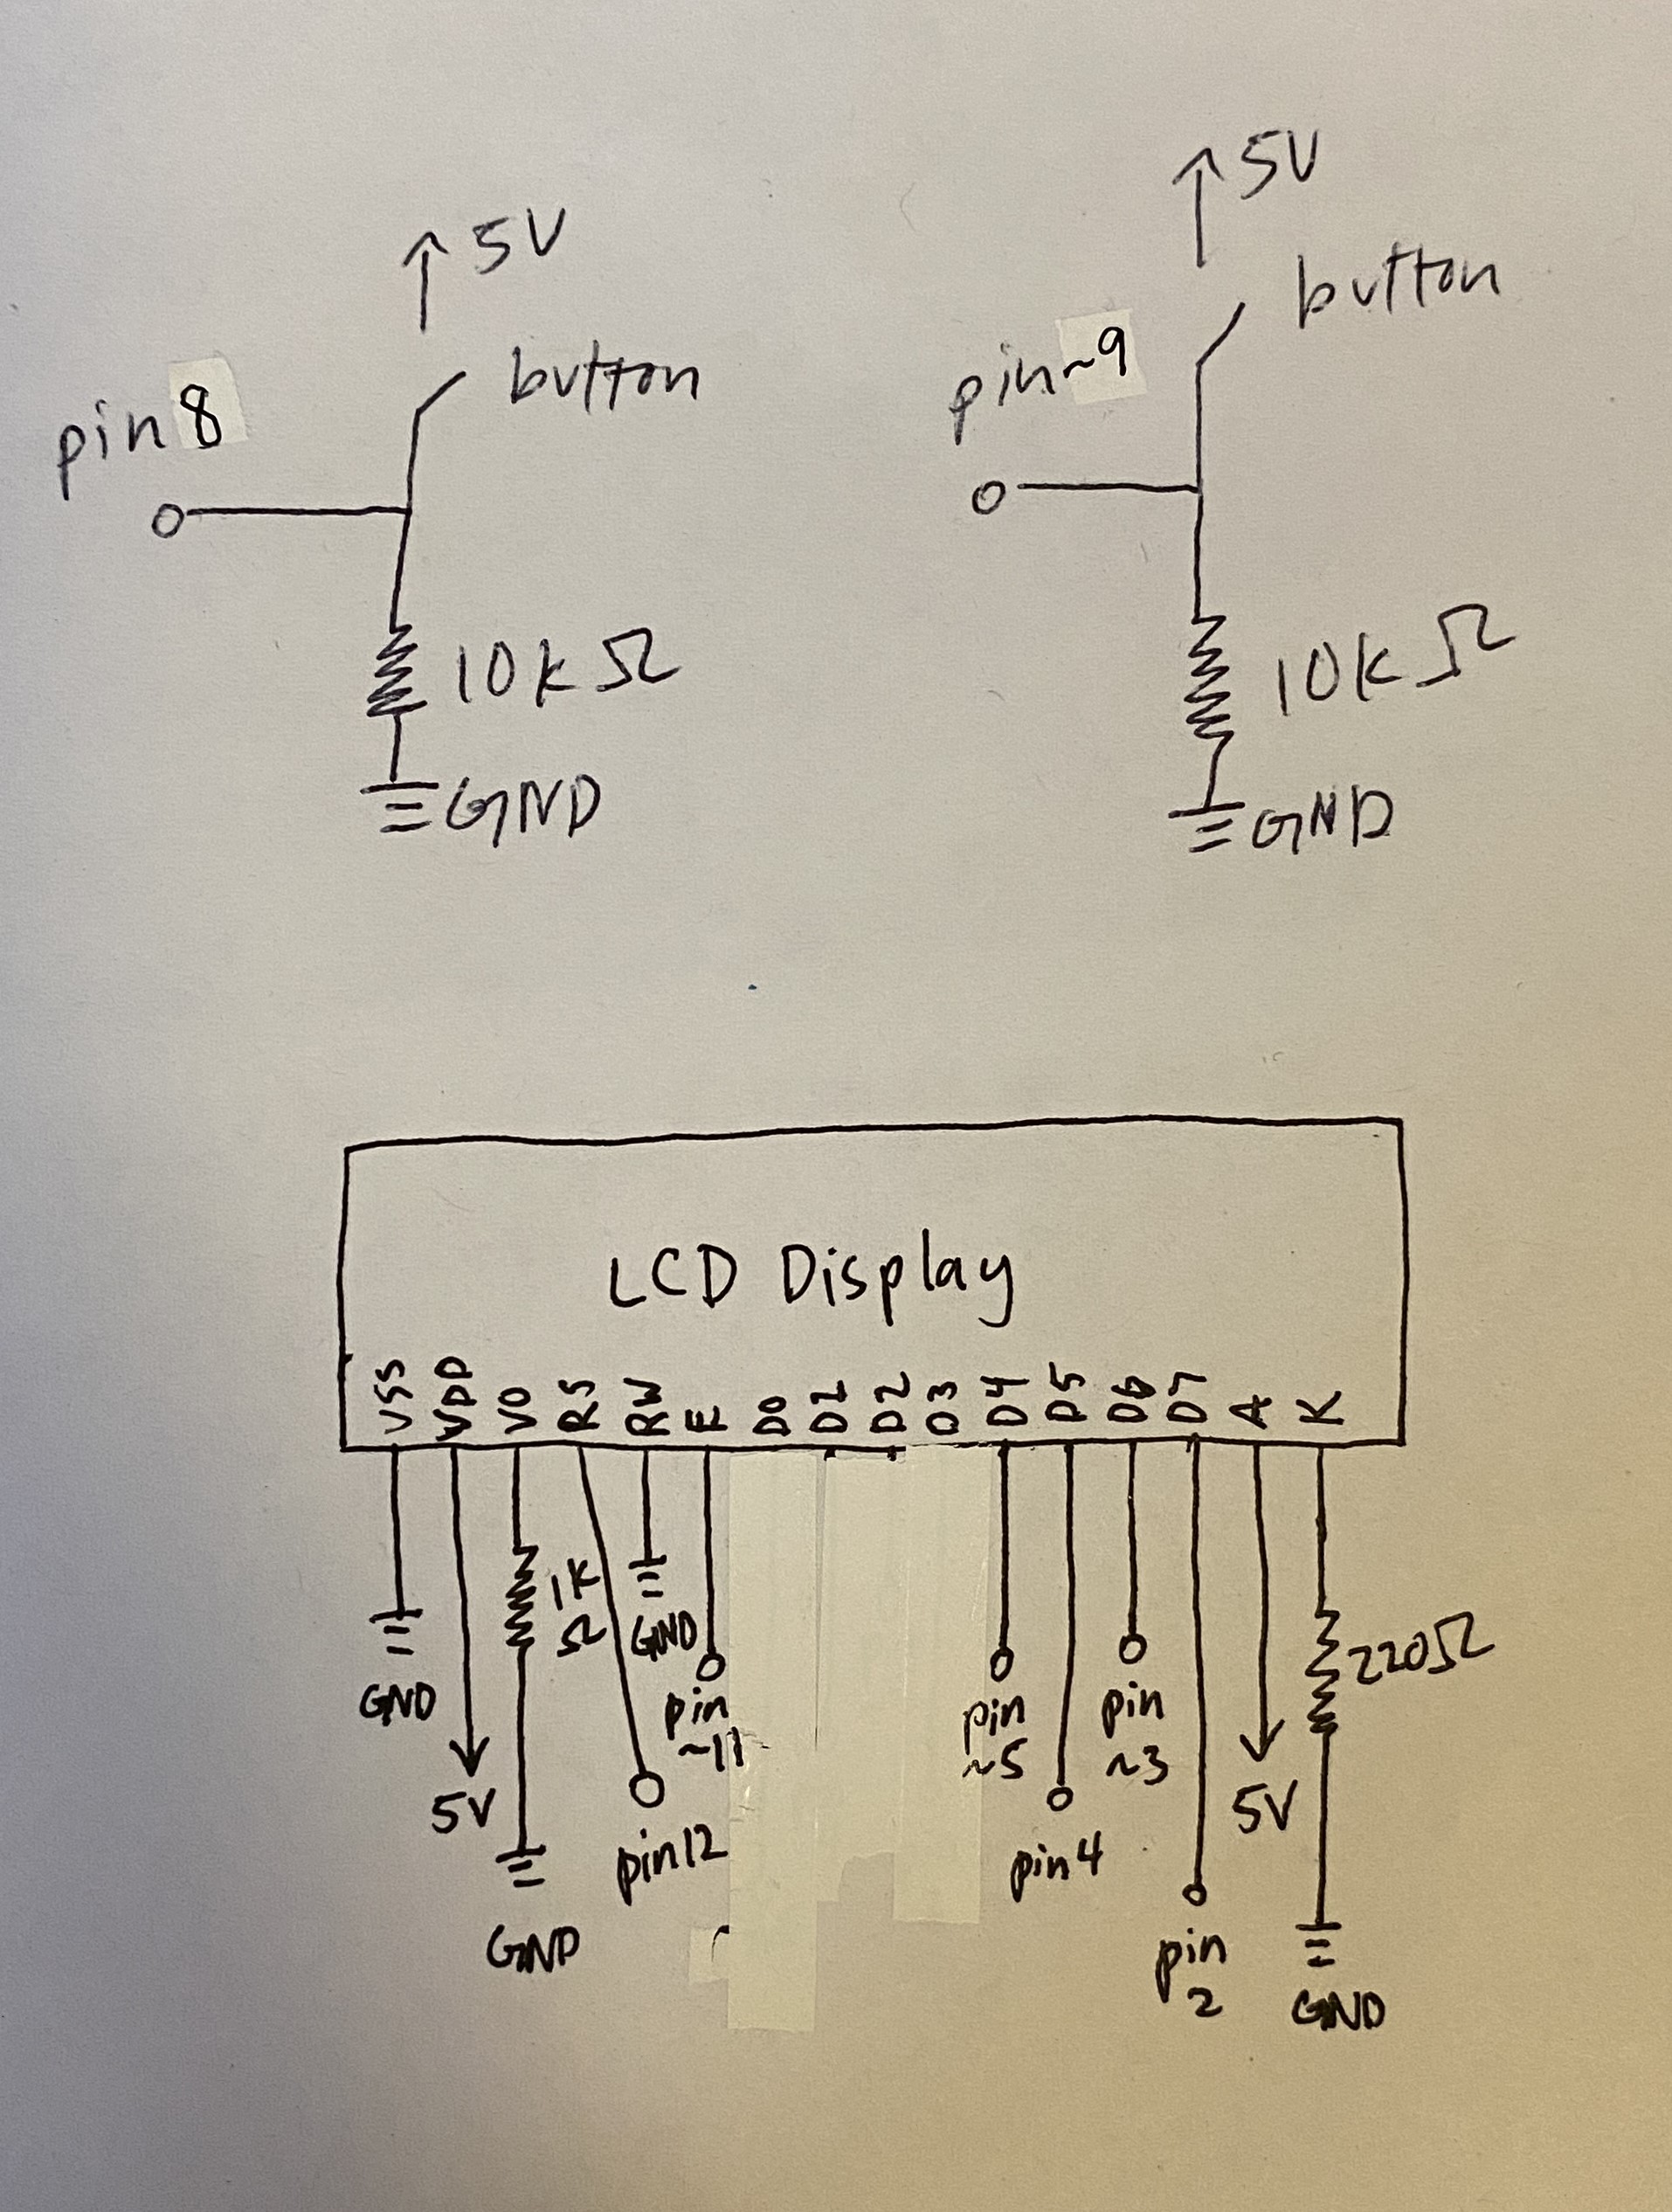 5V
button
pin 8
10k Ω
GND
5V
button
pin ~9
10k Ω
GND
LCD Display
VSS VDD V0 RS RW E D0 D1 D2 D3 D4 D5 D6 D7 A K
GND
5V
1K
Ω
GND
pin12
GND
pin
~11
pin
~5
pin4
pin
~3
pin
2
5V
220Ω
GND